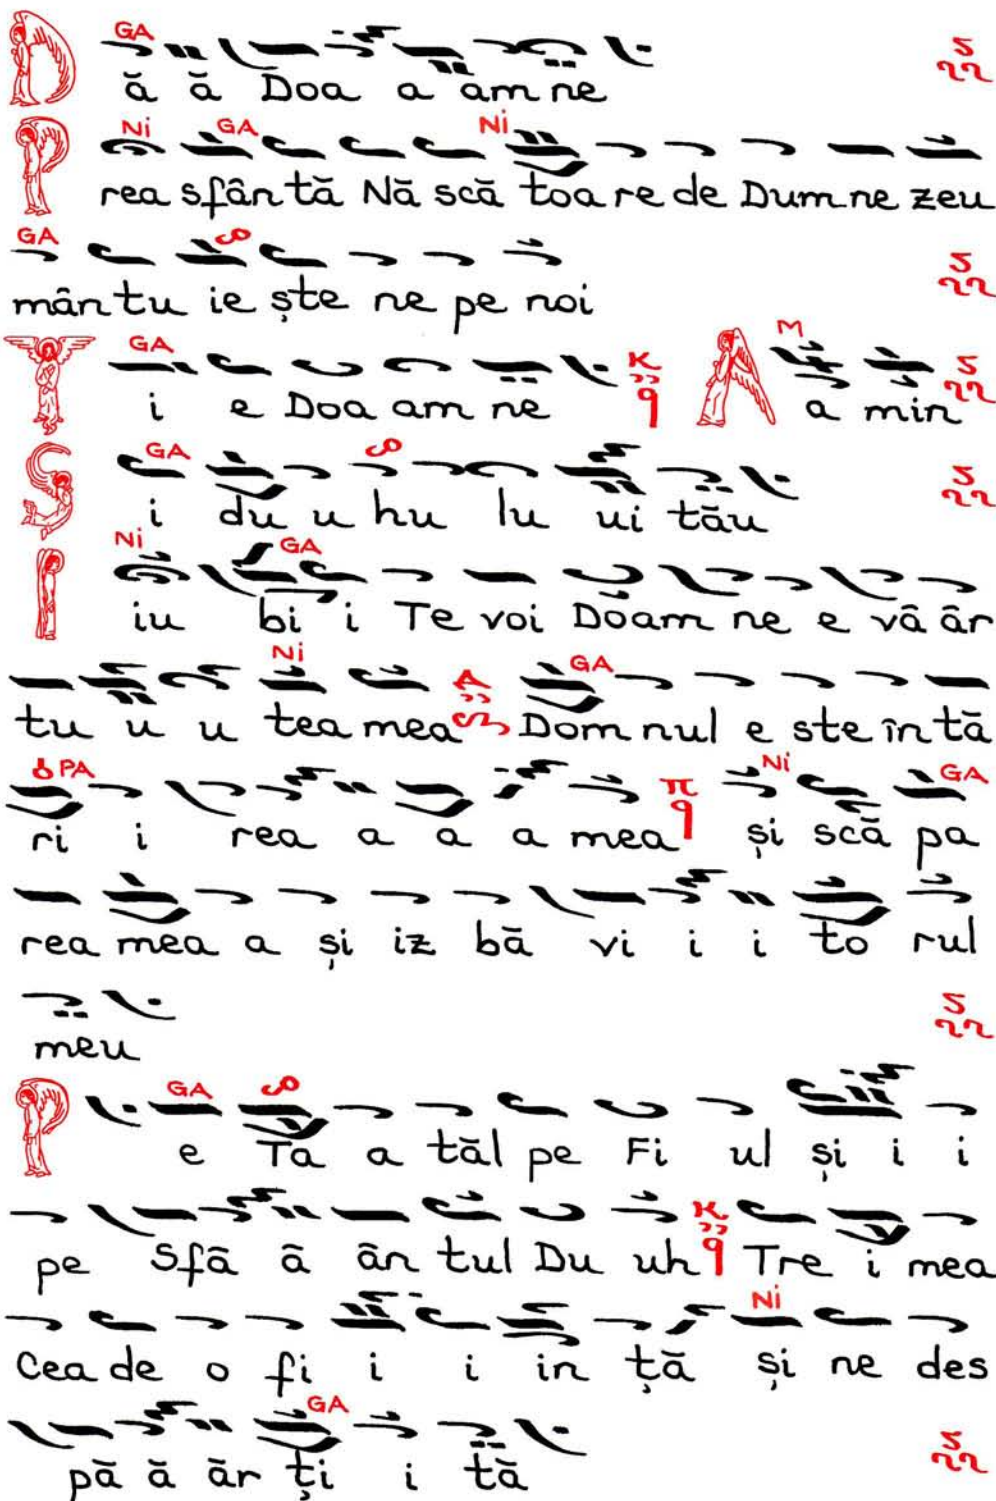 GA
D ă ă Doa a am ne
Ni GA Ni
P rea sfân tă Nă scă toa re de Dum ne zeu
GA
mân tu ie ște ne pe noi
GA K M
T i e Doa am ne A a min
GA
S i du u hu lu ui tău
Ni GA
I iu bi i Te voi Doam ne e vâ âr
Ni GA
tu u u tea mea Dom nul e ste în tă
PA π Ni GA
ri i rea a a a mea și scă pa
rea mea a și iz bă vi i i to rul
meu
GA
P e Ta a tăl pe Fi ul și i i
K
pe Sfă ă ân tul Du uh Tre i mea
Ni
Cea de o fi i i in ță și ne des
GA
pă ă ăr ți i tă